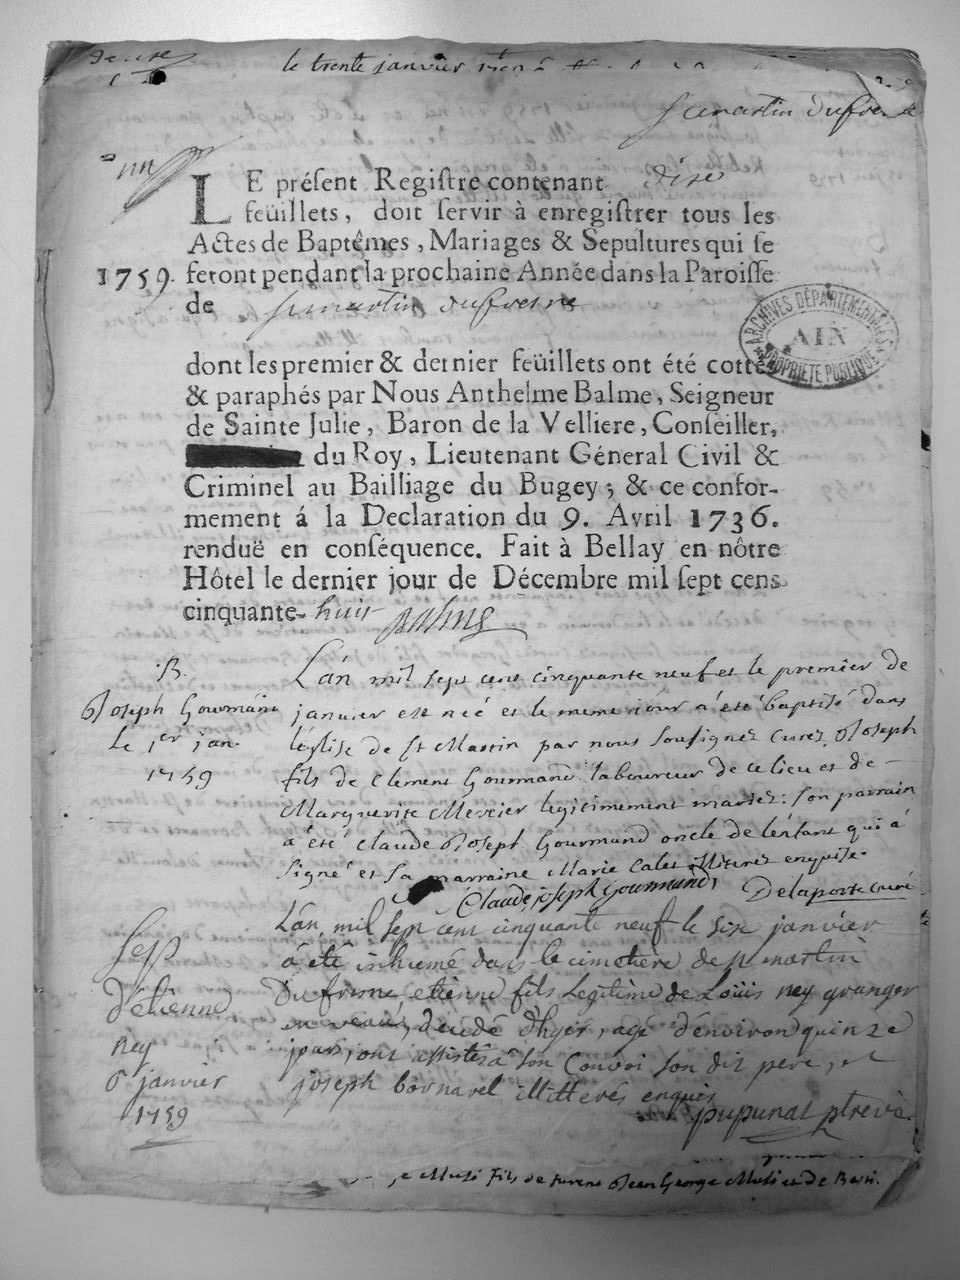 le trente janvier
St martin dufresne
LE préſent Regiſtre contenant dixe
feüillets, doit ſervir à enregiſtrer tous les
Actes de Baptêmes, Mariages & Sepultures qui ſe
1759. feront pendant la prochaine Année dans la Paroiſſe
de St martin dufresne
ARCHIVES DÉPARTEMENTALES
AIN
PROPRIÉTÉ PUBLIQUE
dont les premier & dernier feüillets ont été cottez
& paraphés par Nous Anthelme Balme, Seigneur
de Sainte Julie, Baron de la Velliere, Conſeiller,
du Roy, Lieutenant Géneral Civil &
Criminel au Bailliage du Bugey; & ce confor-
mement á la Declaration du 9. Avril 1736.
renduë en conſéquence. Fait à Bellay en nôtre
Hôtel le dernier jour de Décembre mil ſept cens
cinquante- huit Balme
B.
Joseph Gourmand
Le 1er jan.
1759
L'an mil sept cent cinquante neuf et le premier de
janvier est neé et le meme jour a été baptisé dans
l'église de St Martin par nous soussignez curez Joseph
fils de Clement Gourmand laboureur de ce lieu et de
Marguerite Mercier legitimement mariez: son parrain
à été Claude Joseph Gourmund oncle de l'enfant qui à
signé et sa marraine Marie Calet illiterez enquise.
Claude joseph Gourmund Delaporte curé
Sep
d'etienne
ney
6 janvier
1759
L'an mil sept cent cinquante neuf le six janvier
à été inhumé dans le cimetiere de st martin
Dufresne, etienne fils Legitime de Loüis ney granger
decedé d'hyer, agé d'environ quinze
jours, ont assistés à son Convoi son dit pere, et
joseph bornarel illitterés enquis
pupunat ptre vic.
Musi fils de Jean George Musi et de